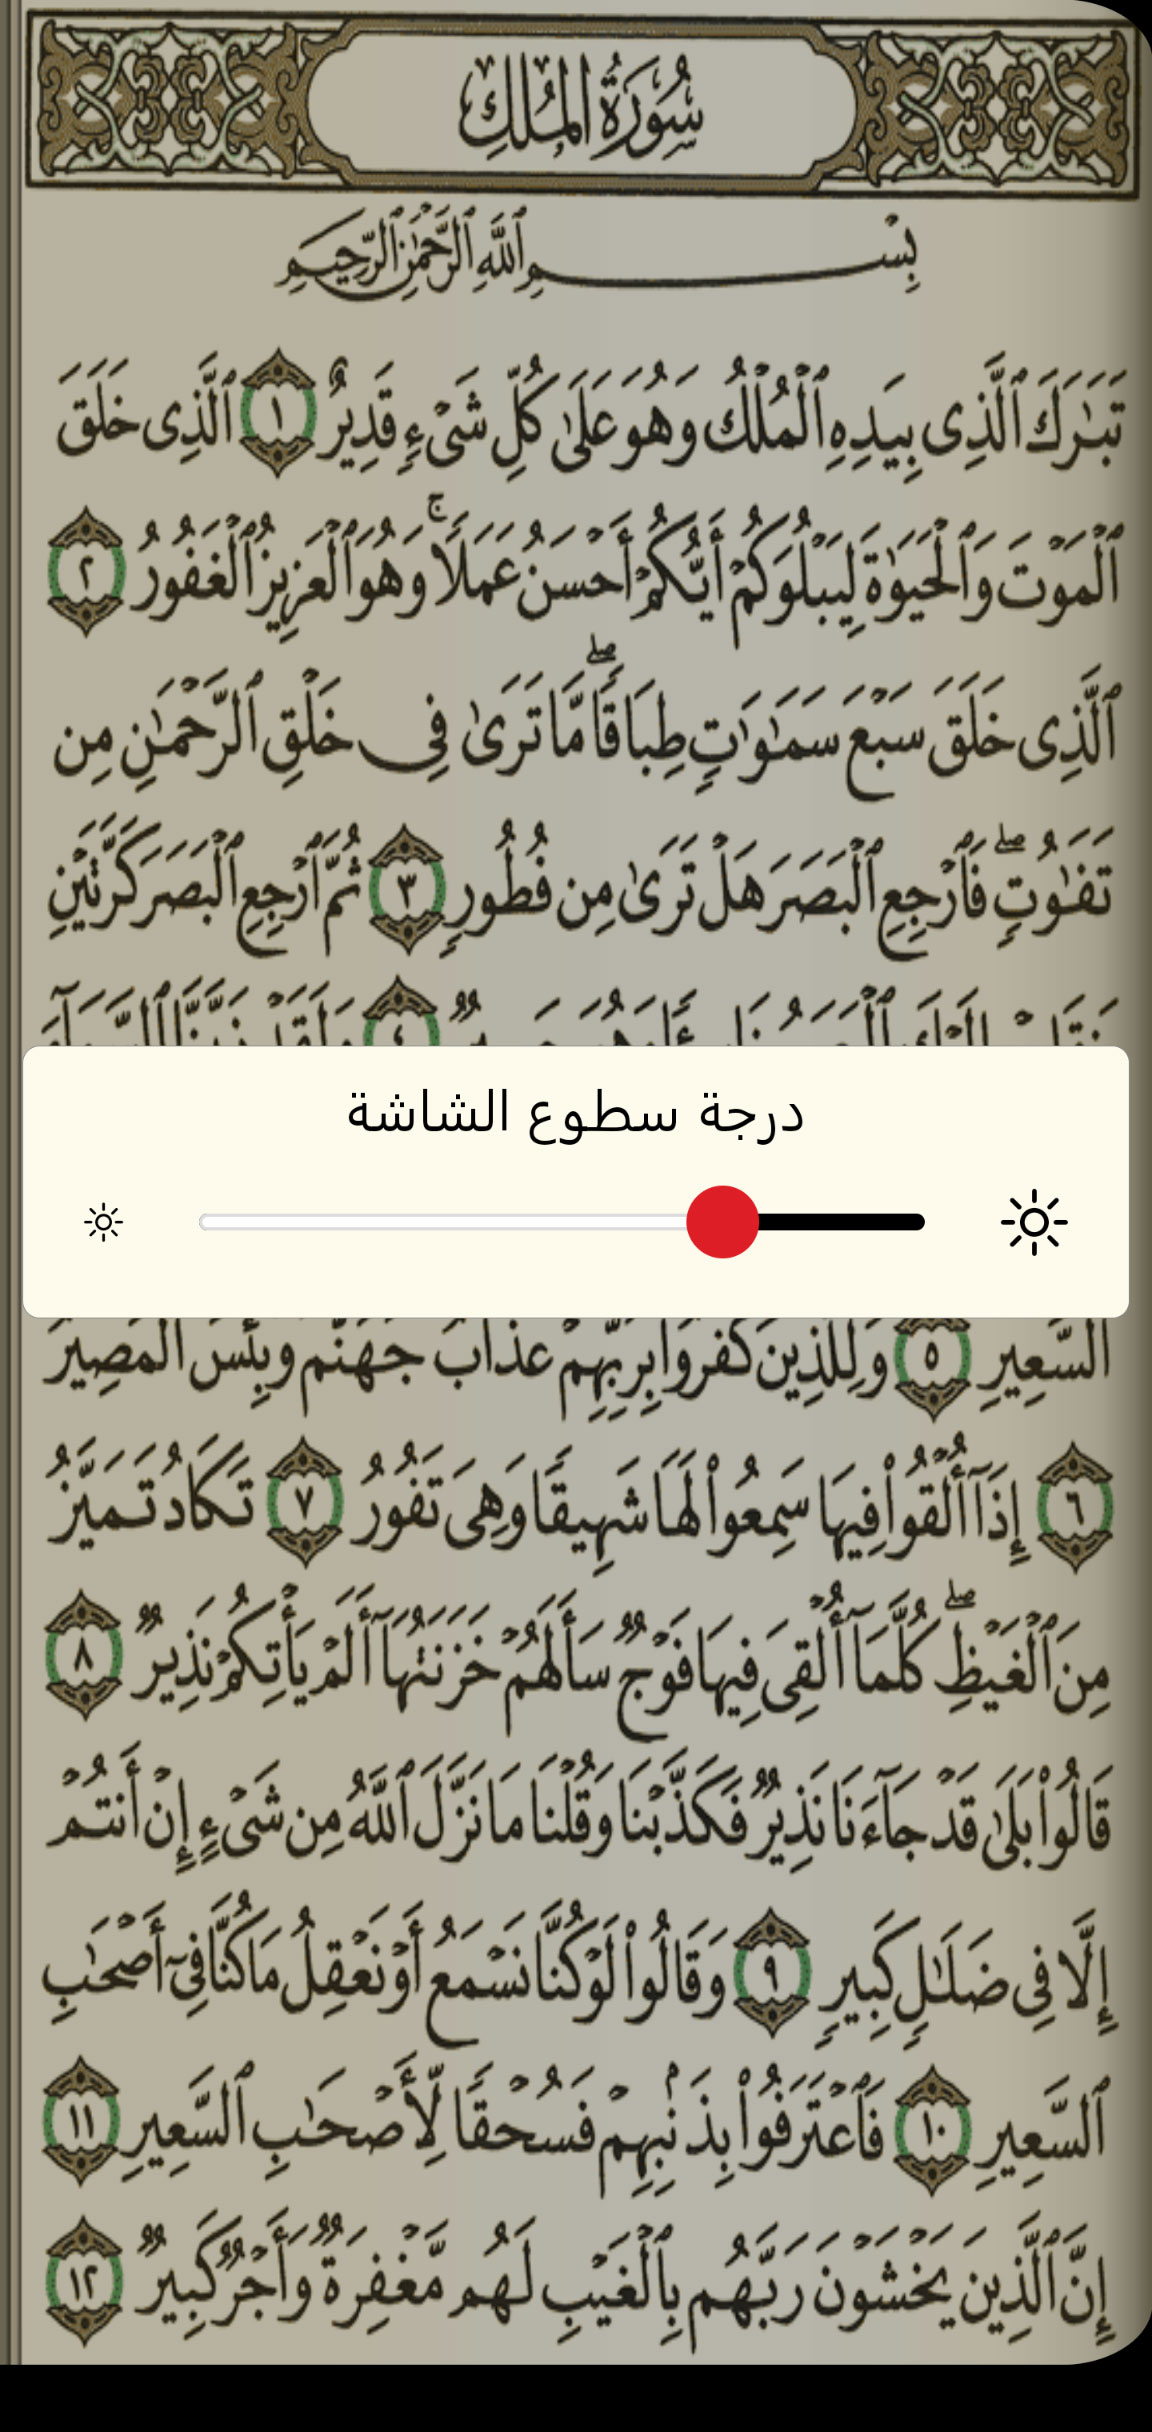 سُورَةُ الْمُلْكِ
بِسْمِ ٱللَّهِ ٱلرَّحْمَٰنِ ٱلرَّحِيمِ
تَبَٰرَكَ ٱلَّذِى بِيَدِهِ ٱلْمُلْكُ وَهُوَ عَلَىٰ كُلِّ شَىْءٍ قَدِيرٌ ١ ٱلَّذِى خَلَقَ
ٱلْمَوْتَ وَٱلْحَيَوٰةَ لِيَبْلُوَكُمْ أَيُّكُمْ أَحْسَنُ عَمَلًا ۚ وَهُوَ ٱلْعَزِيزُ ٱلْغَفُورُ ٢
ٱلَّذِى خَلَقَ سَبْعَ سَمَٰوَٰتٍ طِبَاقًا ۖ مَّا تَرَىٰ فِى خَلْقِ ٱلرَّحْمَٰنِ مِن
تَفَٰوُتٍ ۖ فَٱرْجِعِ ٱلْبَصَرَ هَلْ تَرَىٰ مِن فُطُورٍ ٣ ثُمَّ ٱرْجِعِ ٱلْبَصَرَ كَرَّتَيْنِ
درجة سطوع الشاشة
ٱلسَّعِيرِ ٥ وَلِلَّذِينَ كَفَرُوا۟ بِرَبِّهِمْ عَذَابُ جَهَنَّمَ وَبِئْسَ ٱلْمَصِيرُ
٦ إِذَآ أُلْقُوا۟ فِيهَا سَمِعُوا۟ لَهَا شَهِيقًا وَهِىَ تَفُورُ ٧ تَكَادُ تَمَيَّزُ
مِنَ ٱلْغَيْظِ ۖ كُلَّمَآ أُلْقِىَ فِيهَا فَوْجٌ سَأَلَهُمْ خَزَنَتُهَآ أَلَمْ يَأْتِكُمْ نَذِيرٌ ٨
قَالُوا۟ بَلَىٰ قَدْ جَآءَنَا نَذِيرٌ فَكَذَّبْنَا وَقُلْنَا مَا نَزَّلَ ٱللَّهُ مِن شَىْءٍ إِنْ أَنتُمْ
إِلَّا فِى ضَلَٰلٍ كَبِيرٍ ٩ وَقَالُوا۟ لَوْ كُنَّا نَسْمَعُ أَوْ نَعْقِلُ مَا كُنَّا فِىٓ أَصْحَٰبِ
ٱلسَّعِيرِ ١٠ فَٱعْتَرَفُوا۟ بِذَنۢبِهِمْ فَسُحْقًا لِّأَصْحَٰبِ ٱلسَّعِيرِ ١١
إِنَّ ٱلَّذِينَ يَخْشَوْنَ رَبَّهُم بِٱلْغَيْبِ لَهُم مَّغْفِرَةٌ وَأَجْرٌ كَبِيرٌ ١٢